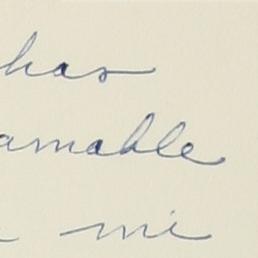 has
amable
mi